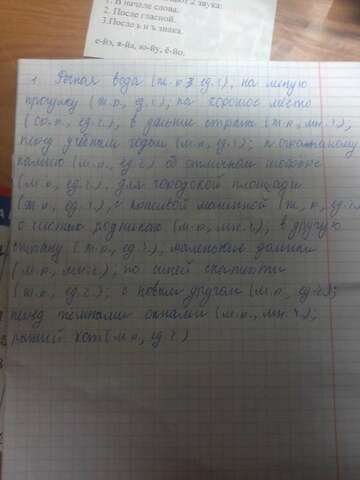 2 звука:
1. В начале слова.
2. После гласной.
3.После ь и ъ знака.
е-йэ, я-йа, ю-йу, ё-йо.
1. Речная вода (ж.р., ед.ч.), на
прогулку (ж.р., ед.ч.); на хорошее место
(ср.р., ед.ч.), в дальние страны (ж.р., мн.ч.);
перед учебным годом (м.р., ед.ч.);
(м.р., ед.ч.) об отличном
(м.р., ед.ч.), для городской площади
(ж.р., ед.ч.), с красивой машиной (ж.р., ед.ч.)
о чистых родниках (м.р., мн.ч.), в другую
страну (ж.р., ед.ч.), маленькие домики
(м.р., мн.ч.); по синей скатерти
(ж.р., ед.ч.); с новым другом (м.р., ед.ч.);
перед тёмными окнами (м.р., мн.ч.);
рыжий кот (м.р., ед.ч.)